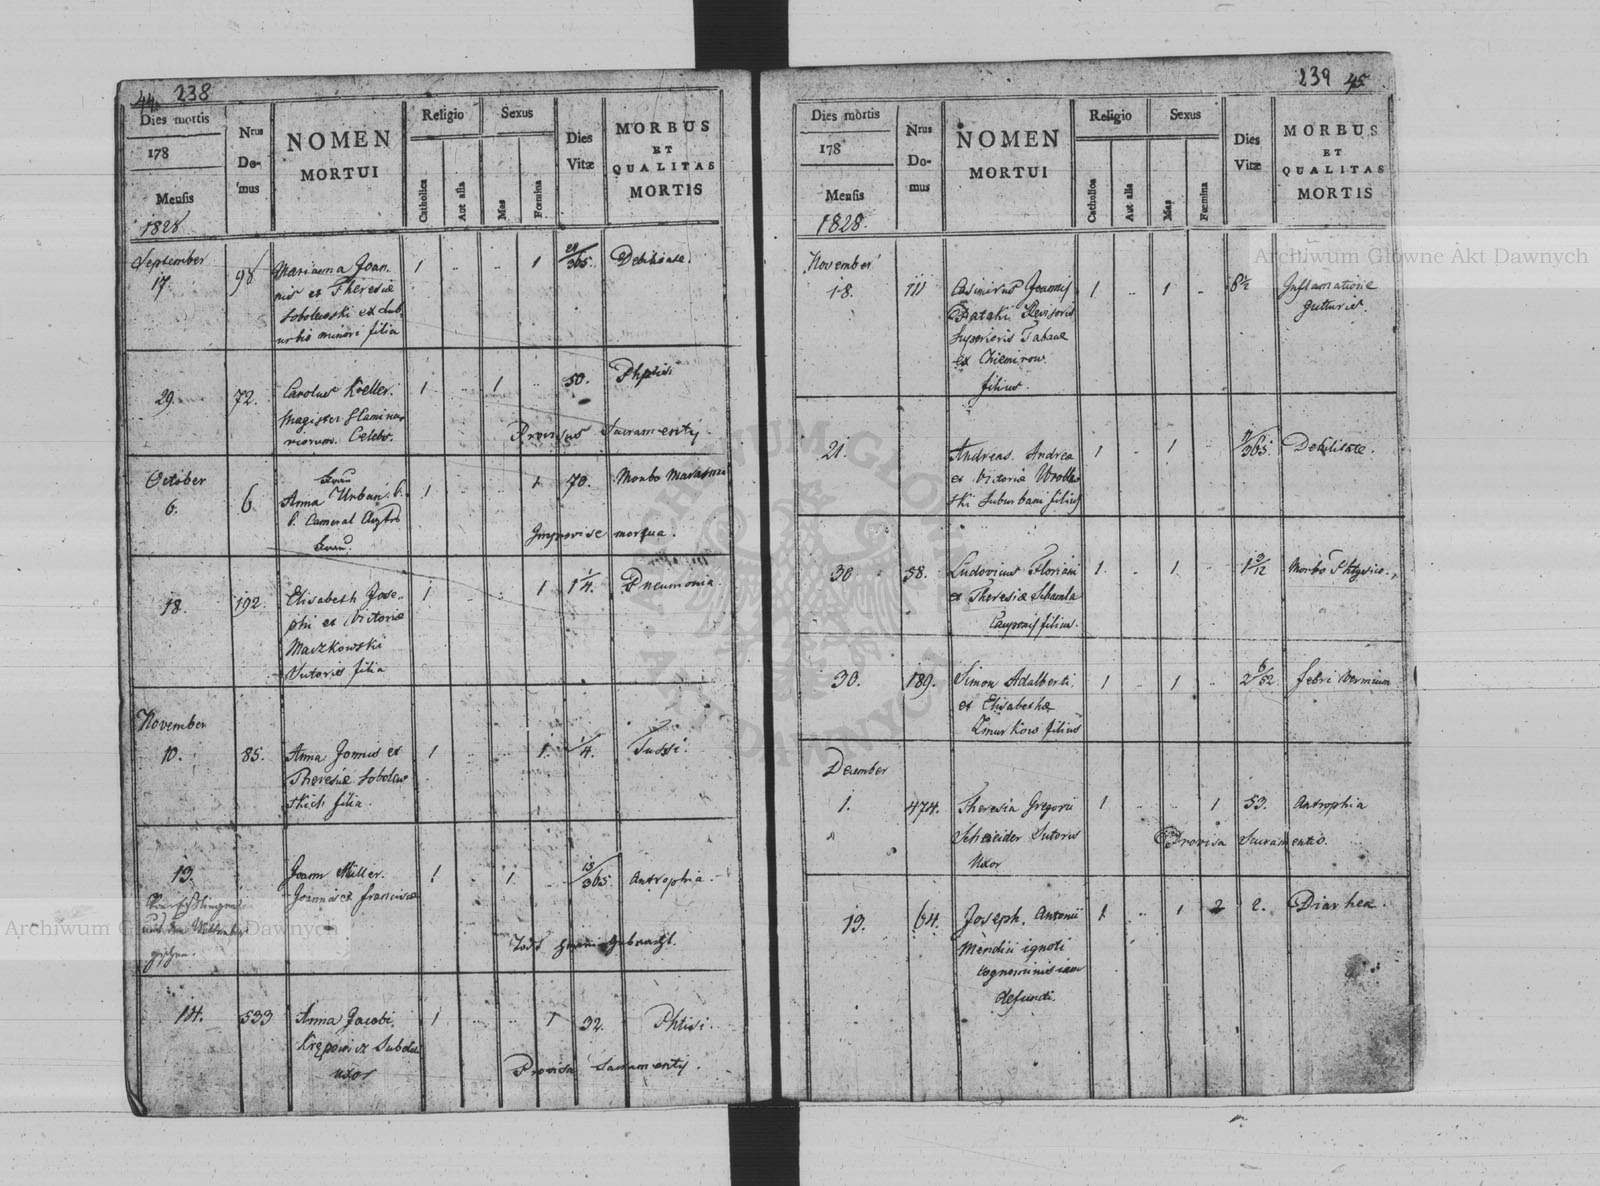 44. 238
Dies mortis
178
Mensis
1828.
Nrus
Do-
mus
NOMEN
MORTUI
Religio
Catholica
Aut alia
Sexus
Mas
Fœmina
Dies
Vitæ
MORBUS
ET
QUALITAS
MORTIS
September
17.
98
Marianna Joan-
nis et Theresiæ
Sobolewski ex Sub-
urbio minori filia
1
1
/365.
Debilitate.
29.
72.
Carolus Keller.
Magister
Celebs.
1
1
50.
Phtisi
Provisus Sacramentis.
October
6.
6
Anna Urban
Cameral
1
1
70.
Morbo
Improvise mortua.
18.
192.
Elisabeth Jose-
phi et Victoriæ
Maczkowski
Sutoris filia
1
1
1 1/4.
Pneumonia.
November
10.
85.
Anna Joannis et
Theresiæ Sobolew-
skich filia.
1
1
1/4.
Tussi.
13.
Joann Miller.
Joannis et Franciscæ
1
1
/365.
Antrophia.
14.
533
Anna Jacobi
uxor
1
1
32.
Phtisi.
Provisa Sacramentis.
239 45.
Dies mortis
178
Mensis
1828.
Nrus
Do-
mus
NOMEN
MORTUI
Religio
Catholica
Aut alia
Sexus
Mas
Fœmina
Dies
Vitæ
MORBUS
ET
QUALITAS
MORTIS
November
18.
111
Casimirus Joannis
Revisoris
Tabacæ
ex
filius.
1
1
Inflamatione
gutturis.
21.
Andreas. Andrea
et Victoriæ
Suburbani filius
1
1
/365.
Debilitate.
30
58.
Ludovicus Floriani
et Theresiæ
Cauponis filius.
1
1
Morbo Phtysico.
30.
189.
Simon Adalberti.
et Elisabethæ
filius
1
1
2 6/52
febri Vermium
December
1.
474.
Theresia Gregorii
Schneider Sutoris
Uxor
1
1
53.
Antrophia
Provisa Sacramentis.
19.
64.
Joseph. Antonii
Mendici ignoti
cognominis iam
defuncti.
1
1
2
2.
Diarhea.
Archiwum Główne Akt Dawnych
Archiwum Główne Akt Dawnych
ARCHIWUM GŁÓWNE
AKT DAWNYCH